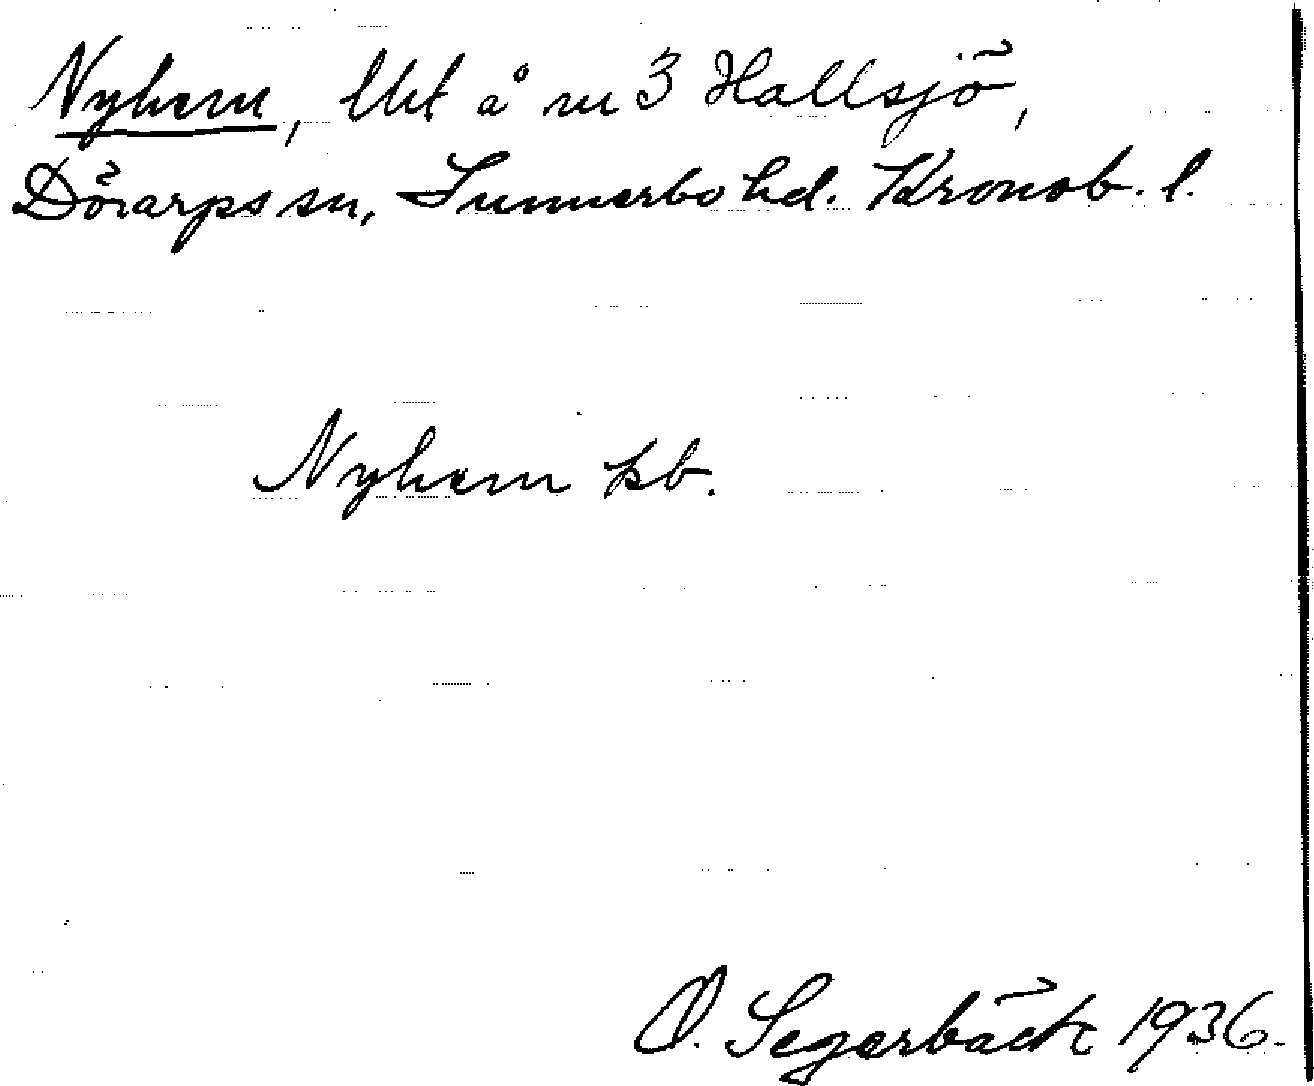 Nyhem, lht å nr 3 Hallsjö,
Dörarps sn, Sunnerbo hd. Kronob. l.
Nyhem kb.
O. Segerbäck 1936.